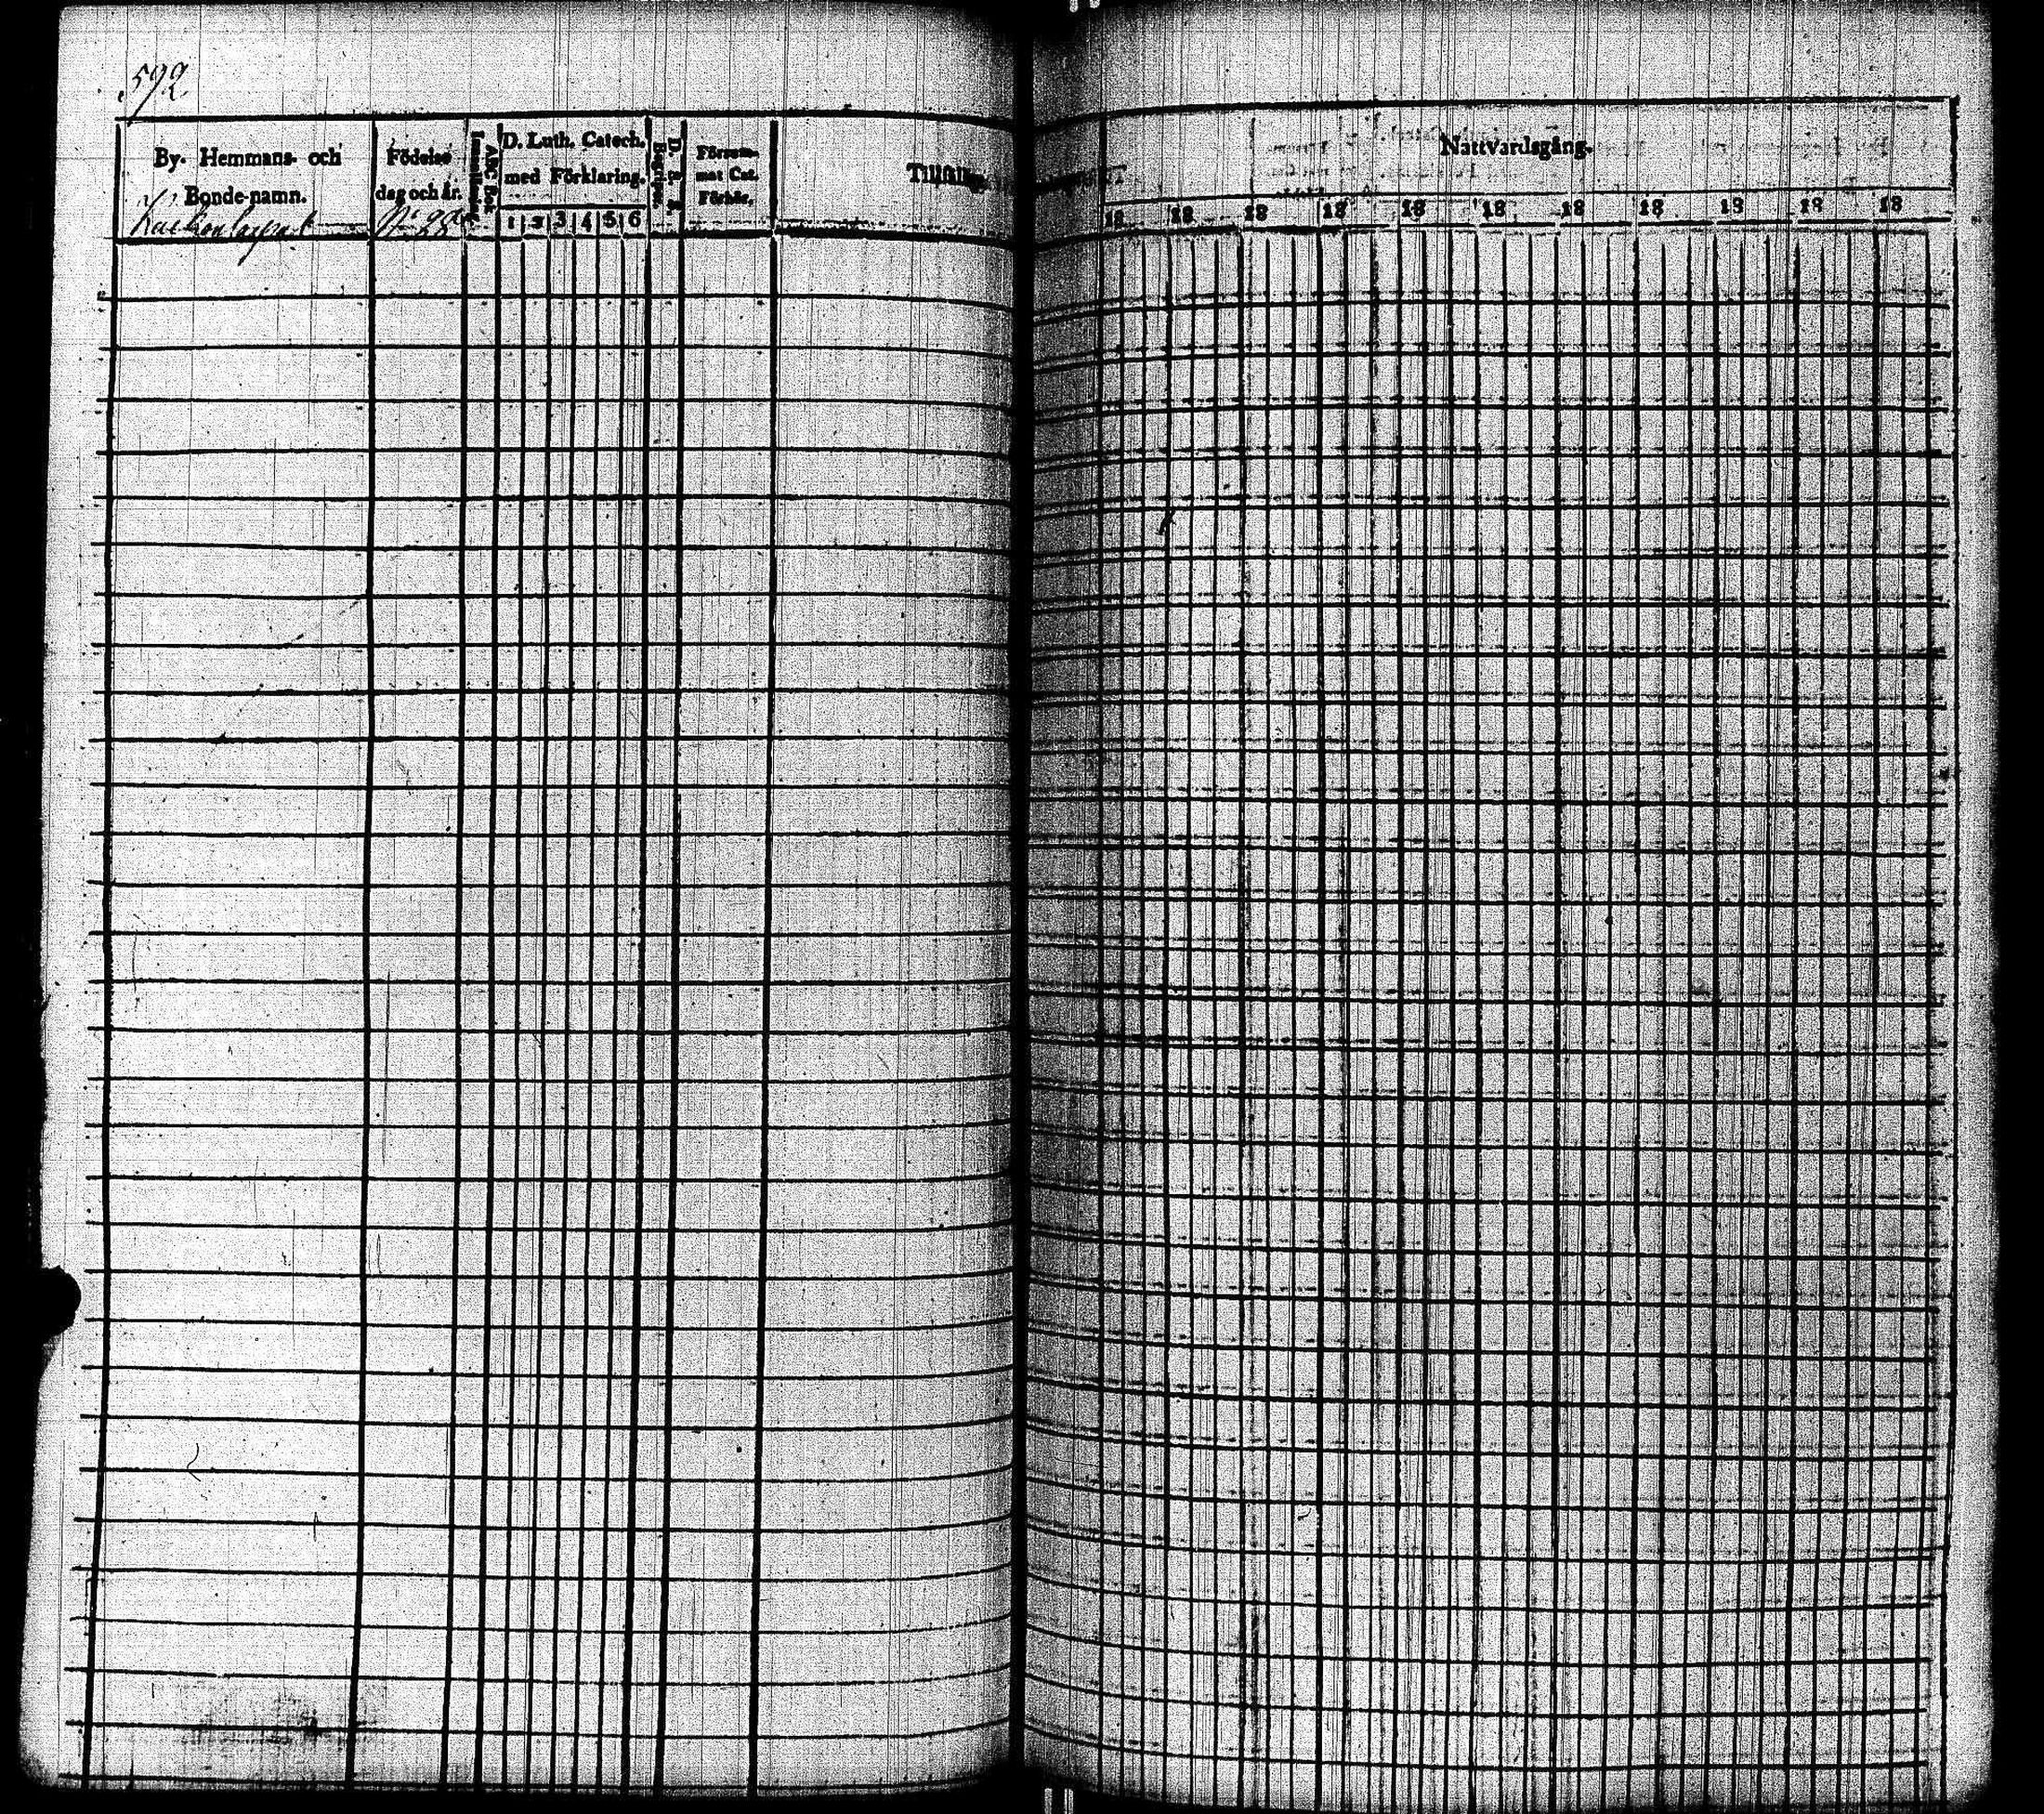 592
By- Hemmans- och
Bonde-namn.
Födelse
dag och år.
ABC Bok
D. Luth. Catech.
med Förklaring.
1 2 3 4 5 6
D. S. S.
Begripn.
Försum-
mat Cat.
Förhör.
Nattvardsgång.
18 18 18 18 18 18 18 18 18 18 18